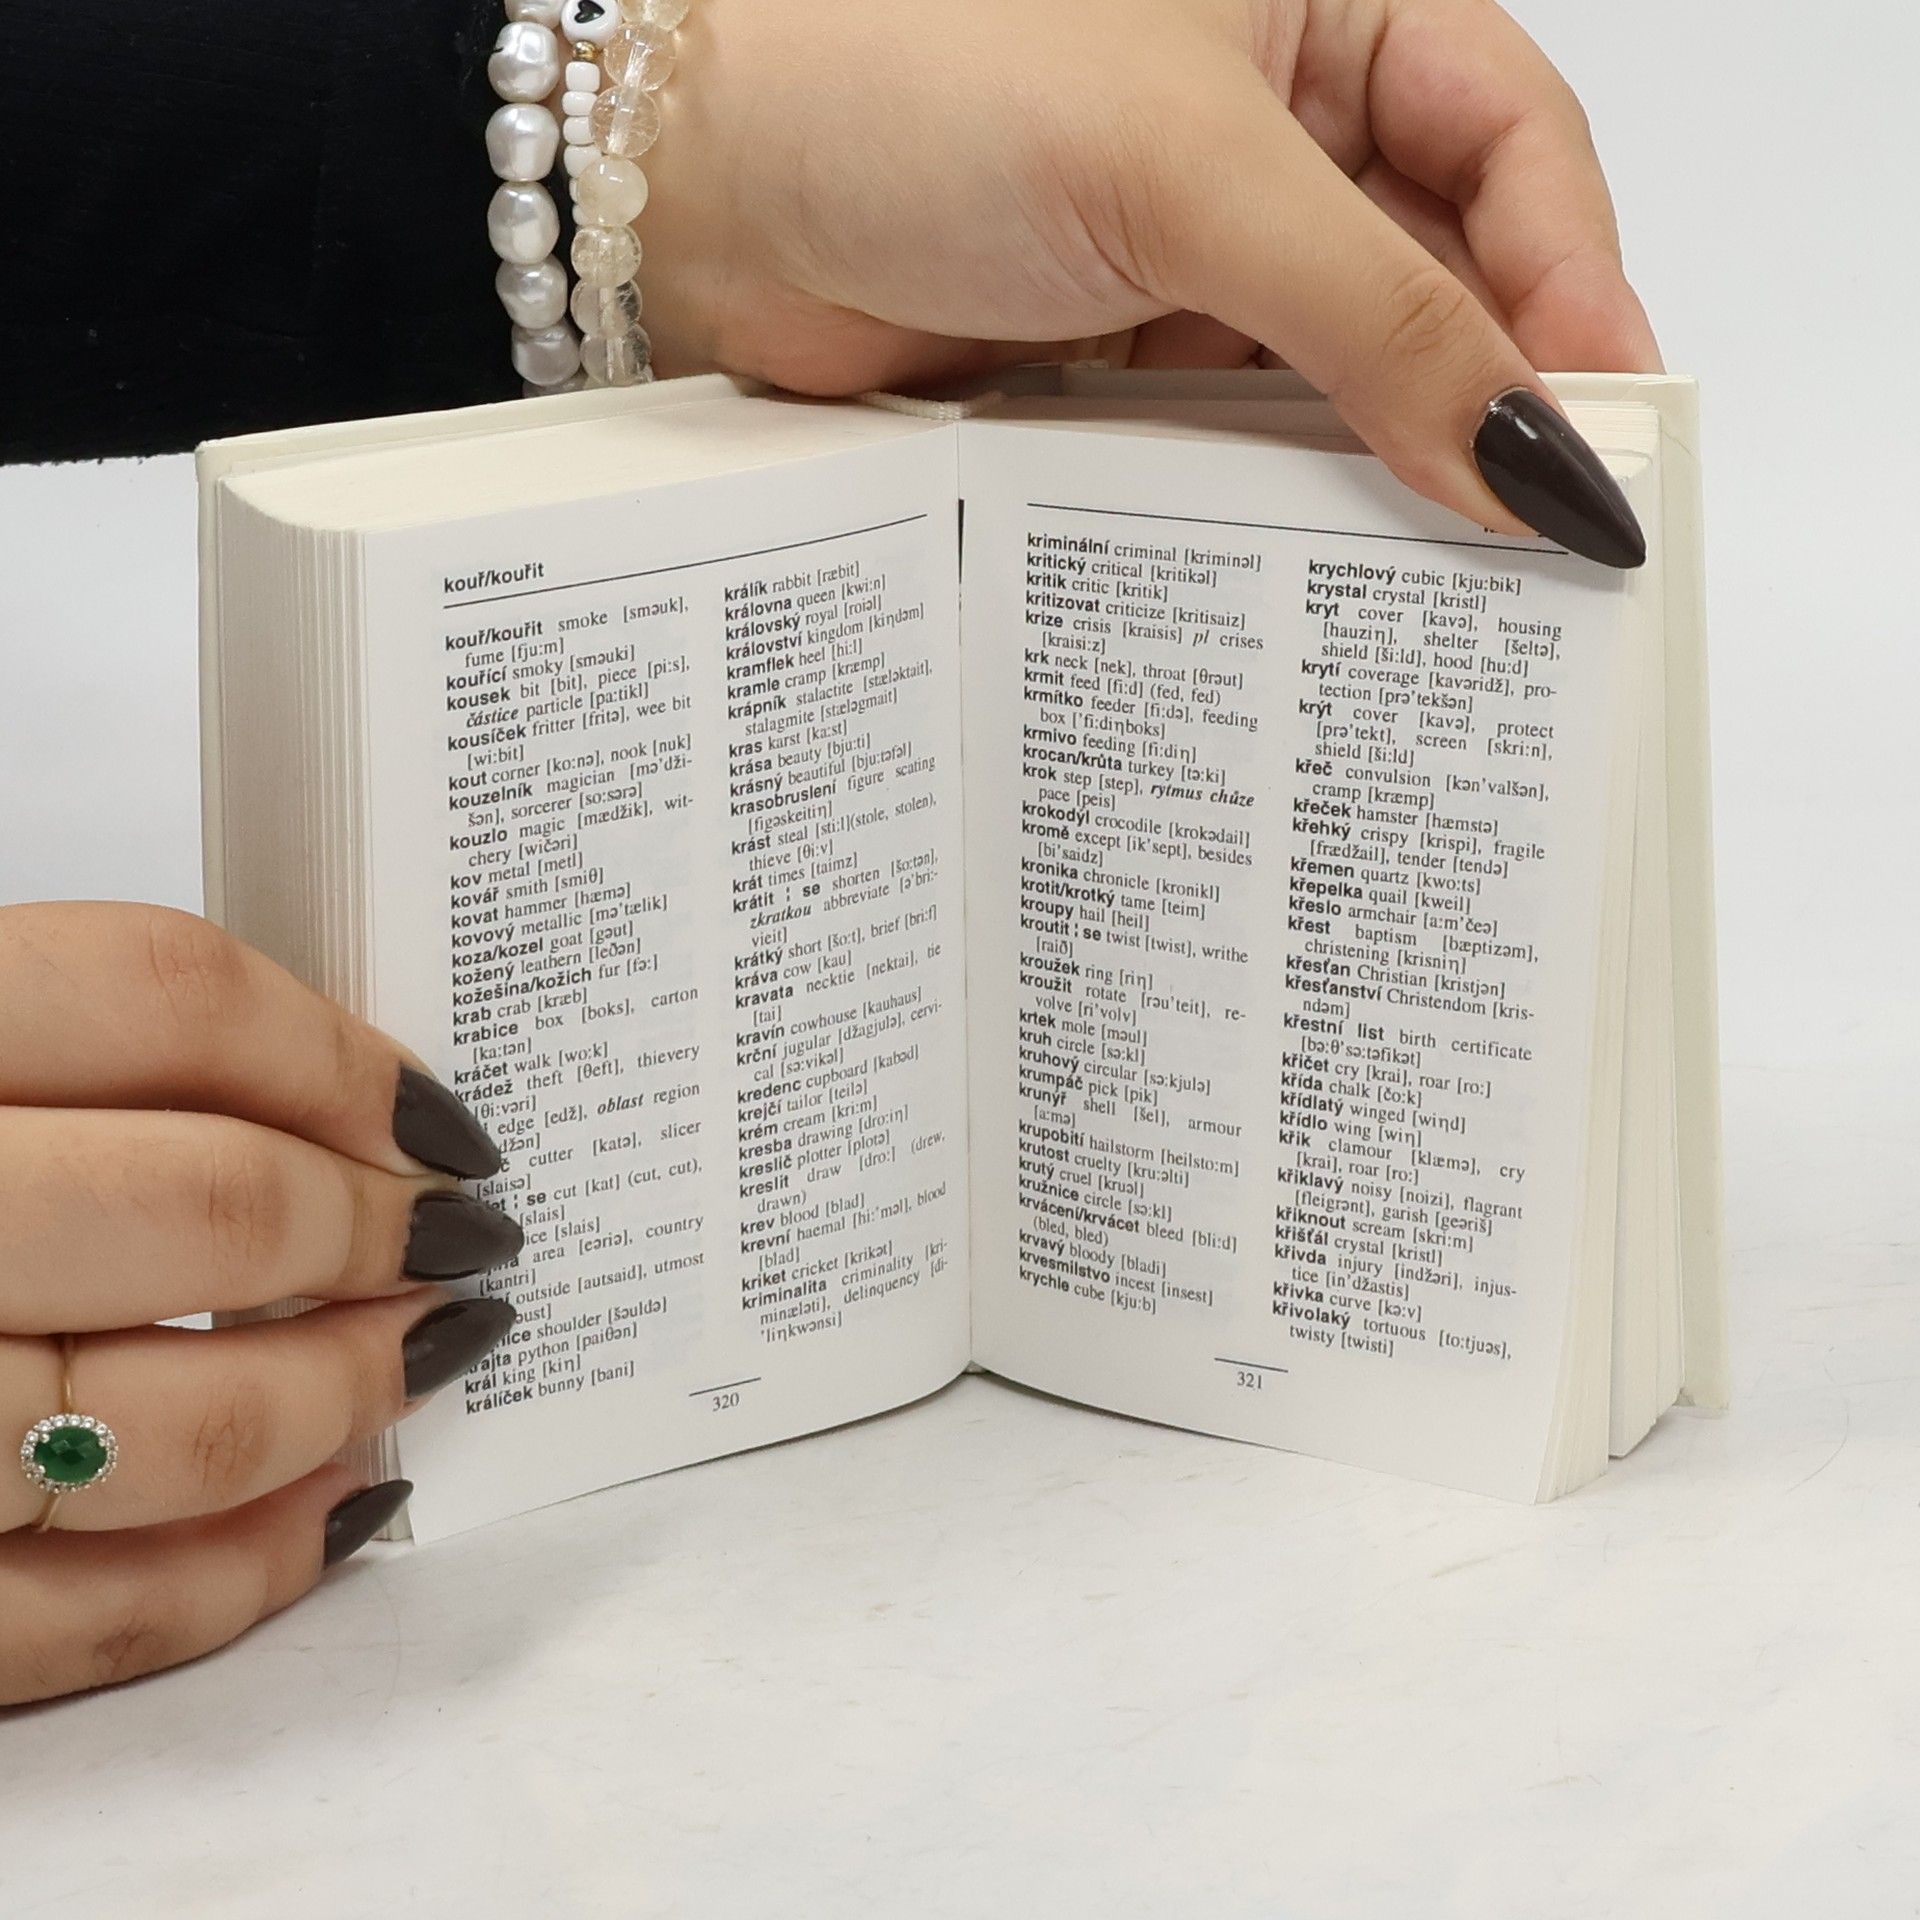 kouř/kouřit
kouř/kouřit smoke [sməuk],
fume [fju:m]
kouřící smoky [sməuki]
kousek bit [bit], piece [pi:s],
částice particle [pa:tikl]
kousíček fritter [fritə], wee bit
[wi:bit]
kout corner [ko:nə], nook [nuk]
kouzelník magician [mə'dži-
šən], sorcerer [so:sərə]
kouzlo magic [mædžik], wit-
chery [wičəri]
kov metal [metl]
kovář smith [smiθ]
kovat hammer [hæmə]
kovový metallic [mə'tælik]
koza/kozel goat [gəut]
kožený leathern [leðən]
kožešina/kožich fur [fə:]
krab crab [kræb]
krabice box [boks], carton
[ka:tən]
kráčet walk [wo:k]
krádež theft [θeft], thievery
[θi:vəri]
edge [edž], oblast region
cutter [katə], slicer
[slaisə]
se cut [kat] (cut, cut),
[slais]
[slais]
area [eəriə], country
[kantri]
outside [autsaid], utmost
shoulder [šəuldə]
python [paiθən]
král king [kiη]
králíček bunny [bani]
králík rabbit [ræbit]
královna queen [kwi:n]
královský royal [roiəl]
království kingdom [kiηdəm]
kramflek heel [hi:l]
kramle cramp [kræmp]
krápník stalactite [stæləktait],
stalagmite [stæləgmait]
kras karst [ka:st]
krása beauty [bju:ti]
krásný beautiful [bju:təfəl]
krasobruslení figure scating
[figəskeitiη]
krást steal [sti:l](stole, stolen),
thieve [θi:v]
krát times [taimz]
krátit ¦ se shorten [šo:tən],
zkratkou abbreviate [ə'bri:-
vieit]
krátký short [šo:t], brief [bri:f]
kráva cow [kau]
kravata necktie [nektai], tie
[tai]
kravín cowhouse [kauhaus]
krční jugular [džagjulə], cervi-
cal [sə:vikəl]
kredenc cupboard [kabəd]
krejčí tailor [teilə]
krém cream [kri:m]
kresba drawing [dro:iη]
kreslič plotter [plotə]
kreslit draw [dro:] (drew,
drawn)
krev blood [blad]
krevní haemal [hi:'məl], blood
[blad]
kriket cricket [krikət]
kriminalita criminality [kri-
minæləti], delinquency [di-
'liηkwənsi]
320
kriminální criminal [kriminəl]
kritický critical [kritikəl]
kritik critic [kritik]
kritizovat criticize [kritisaiz]
krize crisis [kraisis] pl crises
[kraisi:z]
krk neck [nek], throat [θrəut]
krmit feed [fi:d] (fed, fed)
krmítko feeder [fi:də], feeding
box ['fi:diηboks]
krmivo feeding [fi:diη]
krocan/krůta turkey [tə:ki]
krok step [step], rytmus chůze
pace [peis]
krokodýl crocodile [krokədail]
kromě except [ik'sept], besides
[bi'saidz]
kronika chronicle [kronikl]
krotit/krotký tame [teim]
kroupy hail [heil]
kroutit ¦ se twist [twist], writhe
[raið]
kroužek ring [riη]
kroužit rotate [rəu'teit], re-
volve [ri'volv]
krtek mole [məul]
kruh circle [sə:kl]
kruhový circular [sə:kjulə]
krumpáč pick [pik]
krunýř shell [šel], armour
[a:mə]
krupobití hailstorm [heilsto:m]
krutost cruelty [kru:əlti]
krutý cruel [kruəl]
kružnice circle [sə:kl]
krvácení/krvácet bleed [bli:d]
(bled, bled)
krvavý bloody [bladi]
krvesmilstvo incest [insest]
krychle cube [kju:b]
krychlový cubic [kju:bik]
krystal crystal [kristl]
kryt cover [kavə], housing
[hauziη], shelter [šeltə],
shield [ši:ld], hood [hu:d]
krytí coverage [kavəridž], pro-
tection [prə'tekšən]
krýt cover [kavə], protect
[prə'tekt], screen [skri:n],
shield [ši:ld]
křeč convulsion [kən'valšən],
cramp [kræmp]
křeček hamster [hæmstə]
křehký crispy [krispi], fragile
[frædžail], tender [tendə]
křemen quartz [kwo:ts]
křepelka quail [kweil]
křeslo armchair [a:m'čeə]
křest baptism [bæptizəm],
christening [krisniη]
křesťan Christian [kristjən]
křesťanství Christendom [kris-
ndəm]
křestní list birth certificate
[bə:θ'sə:təfikət]
křičet cry [krai], roar [ro:]
křída chalk [čo:k]
křídlatý winged [wiηd]
křídlo wing [wiη]
křik clamour [klæmə], cry
[krai], roar [ro:]
křiklavý noisy [noizi], flagrant
[fleigrənt], garish [geəriš]
křiknout scream [skri:m]
křišťál crystal [kristl]
křivda injury [indžəri], injus-
tice [in'džastis]
křivka curve [kə:v]
křivolaký tortuous [to:tjuəs],
twisty [twisti]
321